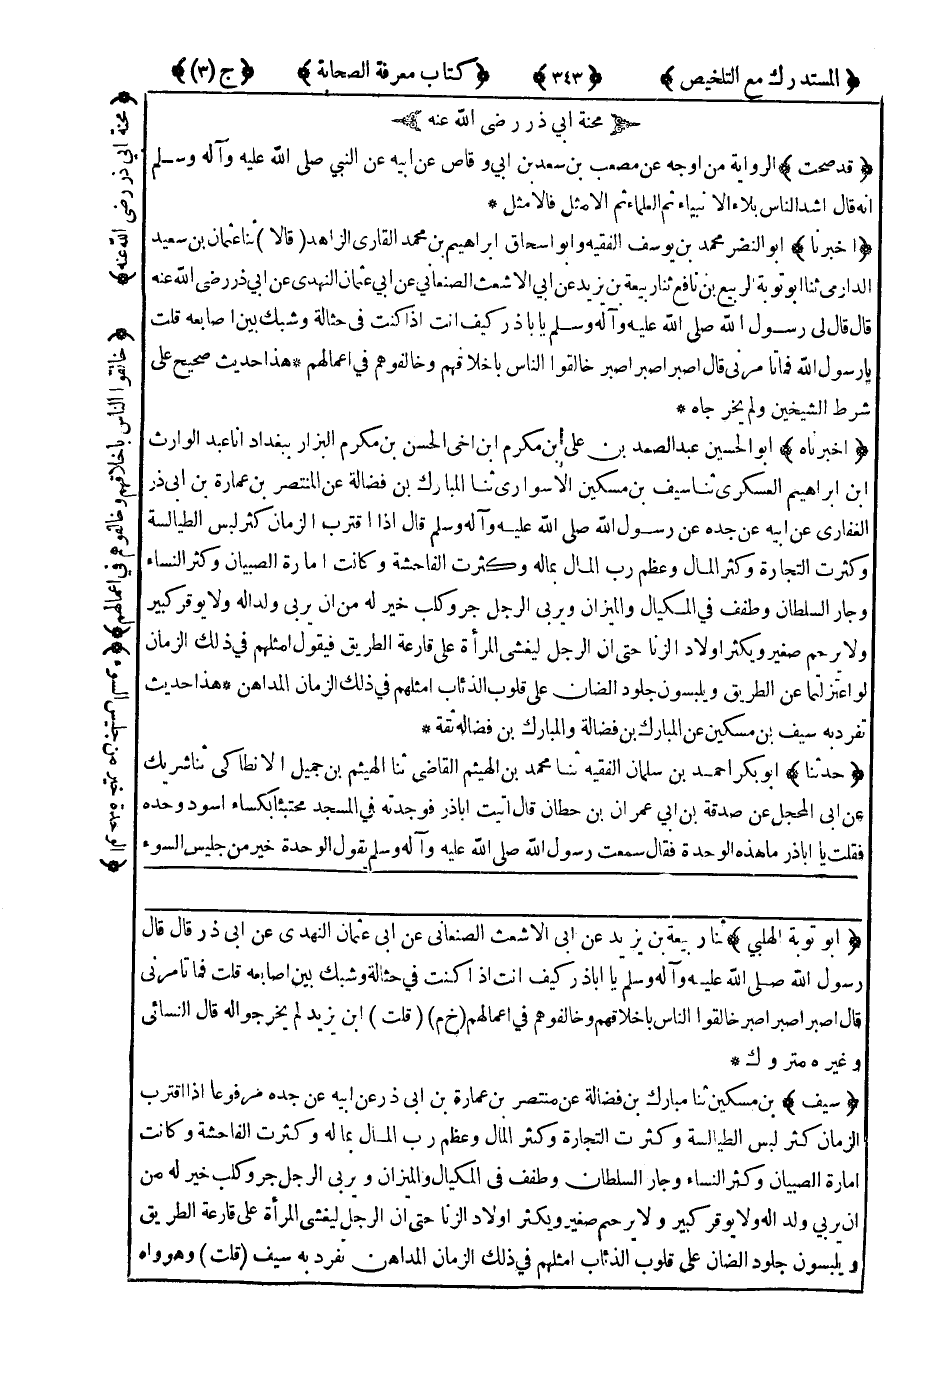 ﴿ المستدرك مع التلخيص ﴾ ﴿ ٣٤٣ ﴾ ﴿ كتاب معرفة الصحابة ﴾ ﴿ ج (٣) ﴾
محنة ابي ذر رضى الله عنه
﴿ قد صحت ﴾ الرواية من اوجه عن مصعب بن سعد بن ابي وقاص عن ابيه عن النبي صلى الله عليه وآله وسلم
انه قال اشد الناس بلاء الانبياء ثم العلماء ثم الامثل فالامثل *
﴿ اخبرنا ﴾ ابو النضر محمد بن يوسف الفقيه وابو اسحاق ابراهيم بن محمد القارى الزاهد ( قالا ) ثنا عثمان بن سعيد
الدارمى ثنا ابو توبة الربيع بن نافع ثنا ربيعة بن يزيد عن ابي الاشعث الصنعاني عن ابي عثمان النهدى عن ابي ذر رضى الله عنه
قال قال لى رسول الله صلى الله عليه وآله وسلم يا باذر كيف انت اذا كنت فى حثالة وشبك بين اصابعه قلت
يا رسول الله فما تأمرنى قال اصبر اصبر اصبر خالقوا الناس باخلاقهم وخالفوهم في اعمالهم * هذا حديث صحيح على
شرط الشيخين ولم يخرجاه *
﴿ اخبرناه ﴾ ابو الحسين عبد الصمد بن على بن مكرم ابن اخى الحسن بن مكرم البزار ببغداد انا عبد الوارث
ابن ابراهيم العسكرى ثنا سيف بن مسكين الاسوارى ثنا المبارك بن فضالة عن المنتصر بن عمارة بن ابى ذر
الغفارى عن ابيه عن جده عن رسول الله صلى الله عليه وآله وسلم قال اذا اقترب الزمان كثر لبس الطيالسة
وكثرت التجارة وكثر المال وعظم رب المال بماله وكثرت الفاحشة وكانت امارة الصبيان وكثر النساء
وجار السلطان وطفف في المكيال والميزان ويربى الرجل جرو كلب خير له من ان يربى ولدا له ولا يوقر كبير
ولا يرحم صغير ويكثر اولاد الزنا حتى ان الرجل ليغشى المرأة على قارعة الطريق فيقول امثلهم في ذلك الزمان
لو اعتزلتما عن الطريق ويلبسون جلود الضان على قلوب الذئاب امثلهم في ذلك الزمان المداهن * هذا حديث
تفرد به سيف بن مسكين عن المبارك بن فضالة والمبارك بن فضالة ثقة *
﴿ حدثنا ﴾ ابو بكر احمد بن سلمان الفقيه ثنا محمد بن الهيثم القاضي ثنا الهيثم بن جميل الانطاكى ثنا شريك
عن ابى المحجل عن صدقة بن ابي عمران بن حطان قال اتيت اباذر فوجدته في المسجد محتبئا بكساء اسود وحده
فقلت يا اباذر ما هذه الوحدة فقال سمعت رسول الله صلى الله عليه وآله وسلم يقول الوحدة خير من جليس السوء
﴿ محنة ابي ذر رضى الله عنه ﴾
﴿ خالقوا الناس باخلاقهم وخالفوهم في اعمالهم ﴾
﴿ الوحدة خير من جليس السوء ﴾
﴿ ابو توبة الحلبي ﴾ ثنا ربيعة بن يزيد عن ابى الاشعث الصنعانى عن ابى عثمان النهدى عن ابى ذر قال قال
رسول الله صلى الله عليه وآله وسلم يا اباذر كيف انت اذا كنت في حثالة وشبك بين اصابعه قلت فما تأمرنى
قال اصبر اصبر اصبر خالقوا الناس باخلاقهم وخالفوهم في اعمالهم (خ م) ( قلت ) ابن يزيد لم يخرجوا له قال النسائى
وغيره متروك *
﴿ سيف ﴾ بن مسكين ثنا مبارك بن فضالة عن منتصر بن عمارة بن ابى ذر عن ابيه عن جده مرفوعا اذا اقترب
الزمان كثر لبس الطيالسة وكثرت التجارة وكثر المال وعظم رب المال بماله وكثرت الفاحشة وكانت
امارة الصبيان وكثر النساء وجار السلطان وطفف فى المكيال والميزان ويربى الرجل جرو كلب خير له من
ان يربي ولدا له ولا يوقر كبير ولا يرحم صغير ويكثر اولاد الزنا حتى ان الرجل ليغشى المرأة على قارعة الطريق
ويلبسون جلود الضان على قلوب الذئاب امثلهم في ذلك الزمان المداهن تفرد به سيف ( قلت ) وهو واه